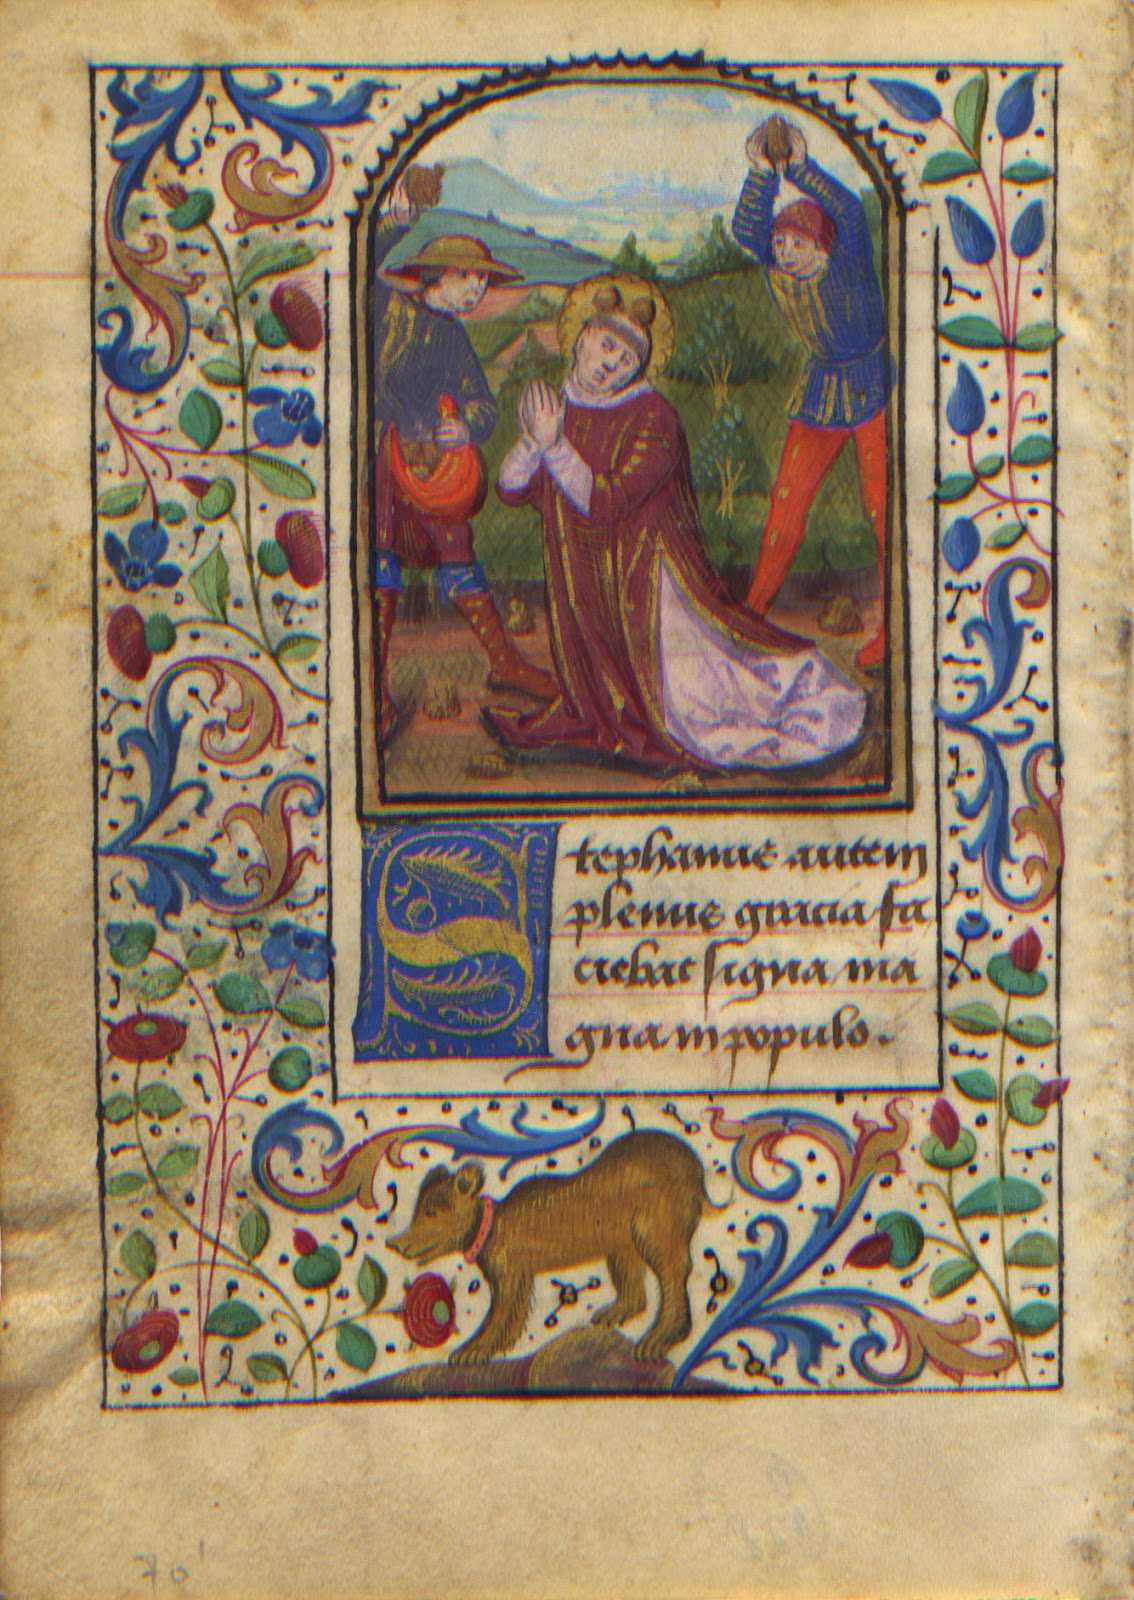 Stephanus autem
plenus gracia fa
ciebat signa ma
gna in populo.
70